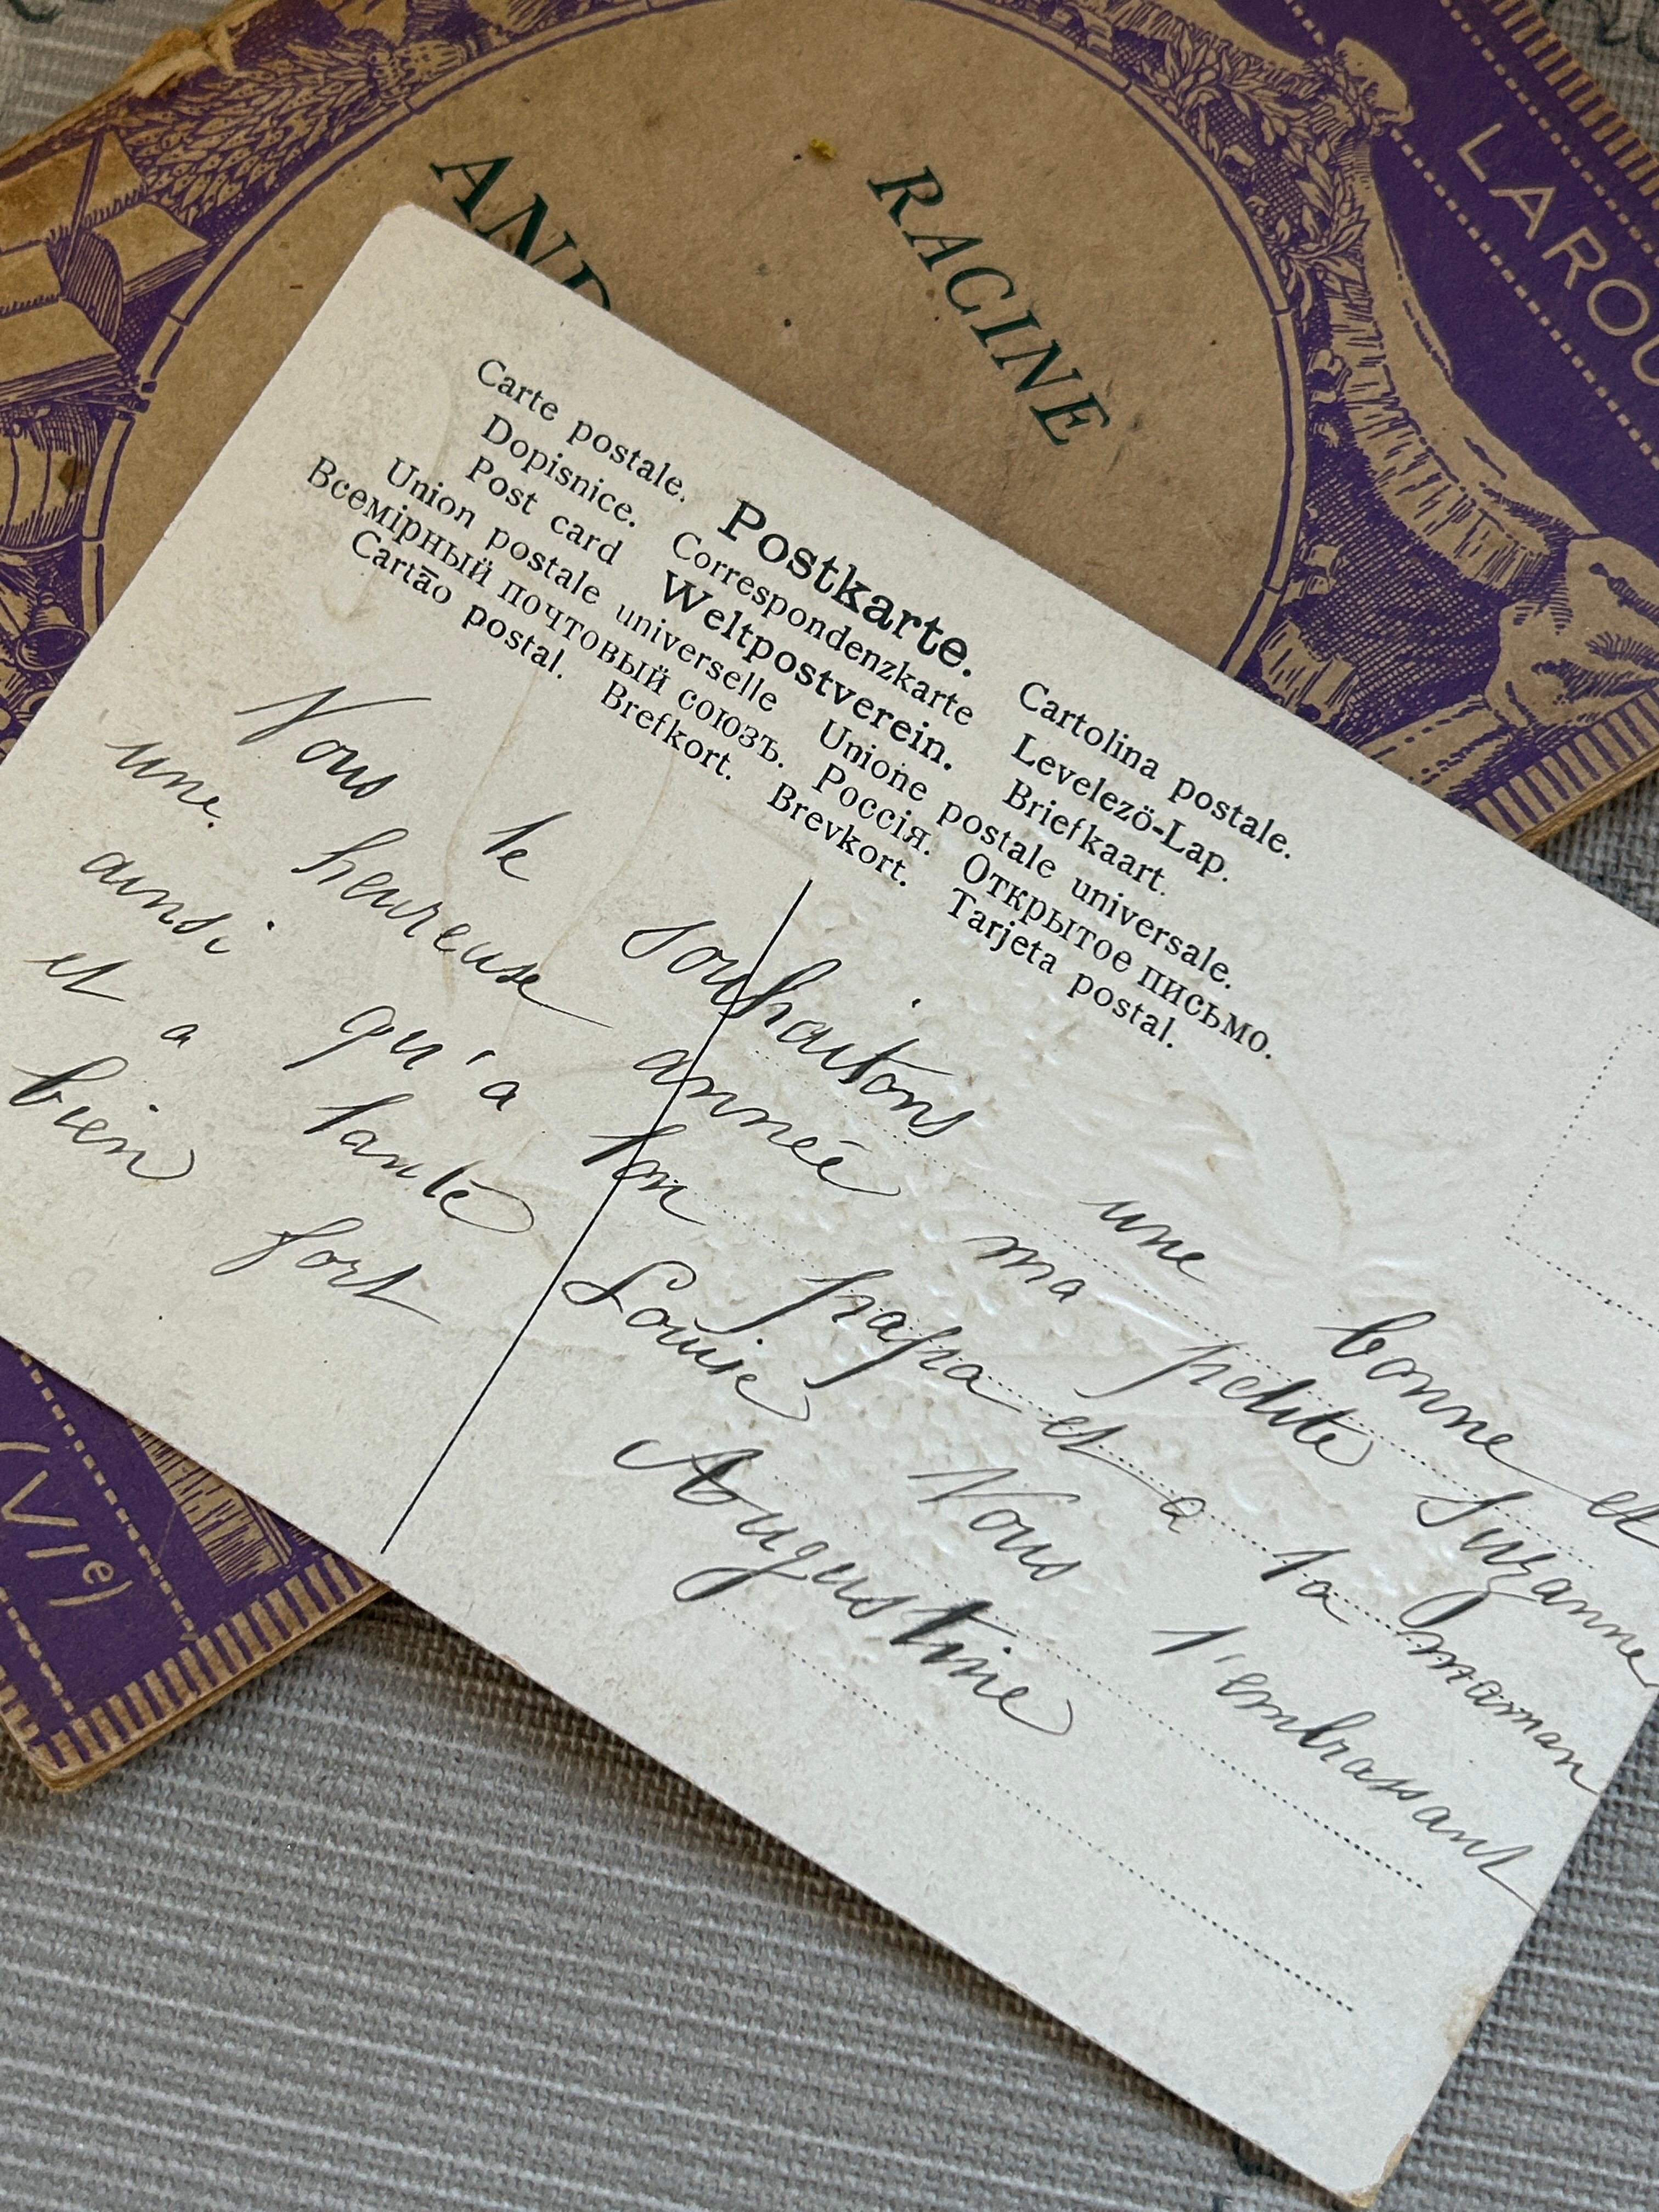 RACINE
AND
LAROU
VIe)
Carte postale. Postkarte. Cartolina postale.
Dopisnice. Correspondenzkarte Levelezö-Lap.
Post card Weltpostverein. Briefkaart.
Union postale universelle Unione postale universale.
Всемірный почтовый союзъ. Россія. Открытое письмо.
Cartāo postal. Brefkort. Brevkort. Tarjeta postal.
Nous te souhaitons une bonne et
une heureuse année ma petite Suzanne
ainsi qu'a ton papa et a ta maman
et a tante Louise Nous t'embrassant
bien fort Augustine